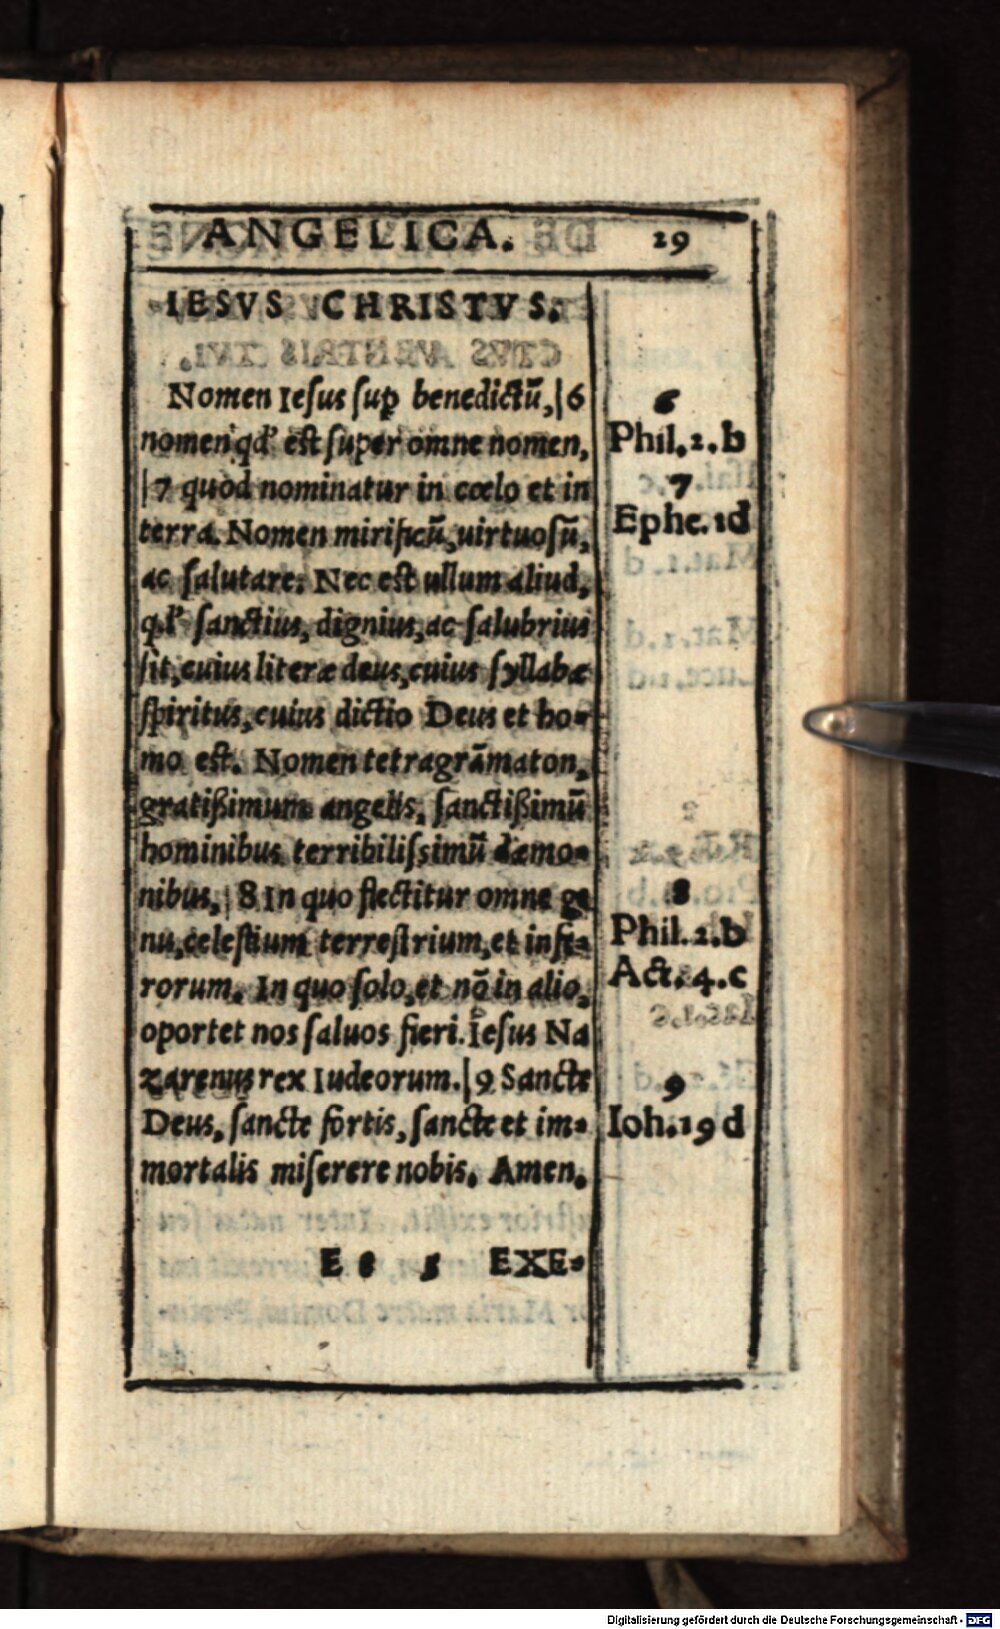 ANGELICA. 29
IESVS CHRISTVS.
Nomen Iesus sup benedictũ, |6
nomen qd' est super omne nomen,
|7 quod nominatur in cœlo et in
terra. Nomen mirificũ, uirtuosũ,
ac salutare. Nec est ullum aliud,
qd' sanctius, dignius, ac salubrius
sit, cuius literæ deus, cuius syllabæ
spiritus, cuius dictio Deus et ho-
mo est. Nomen tetragrãmaton,
gratißimum angelis, sanctißimũ
hominibus, terribilissimũ dæmo-
nibus, |8 In quo flectitur omne ge
nu, celestium terrestrium, et infe-
rorum. In quo solo, et nõ in alio,
oportet nos saluos fieri. Iesus Na
zarenus rex Iudeorum. |9 Sancte
Deus, sancte fortis, sancte et im-
mortalis miserere nobis. Amen.
E 5 EXE-
6
Phil. 2. b
7
Ephe. 1d
8
Phil. 2. b
Act. 4. c
9
Ioh. 19 d
Digitalisierung gefördert durch die Deutsche Forschungsgemeinschaft - DFG